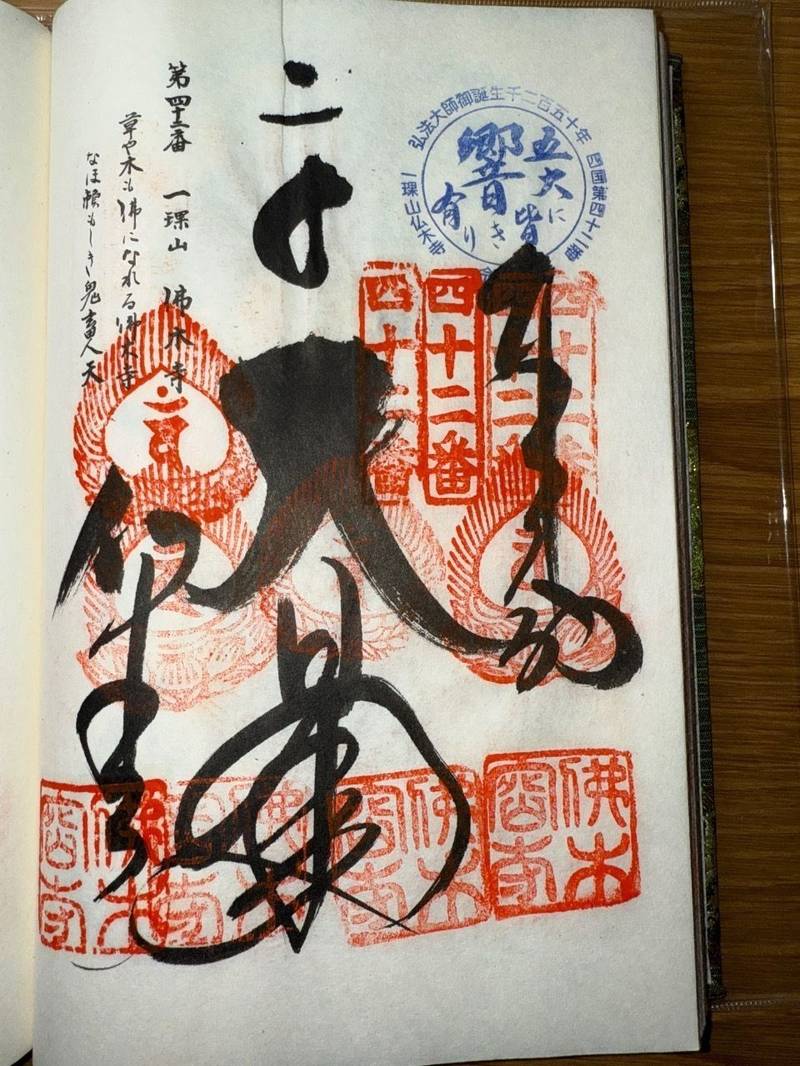 弘法大師御誕生千二百五十年
四国第四十二番
一𤦲山仏木寺
五大に
皆
響き
有り
四十二番
四十二番
四十二番
奉納
大
佛木寺
佛木
佛木
佛木
佛木
第四十二番 一𤦲山 佛木寺
草や木も佛になれる佛木寺
なほ頼もしき鬼畜人天